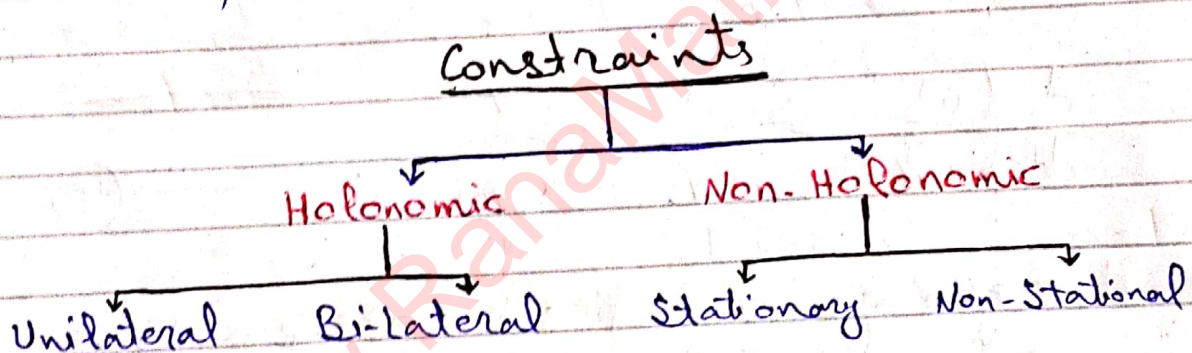 Constraints
Holonomic Non-Holonomic
Unilateral Bi-Lateral Stationary Non-Stational